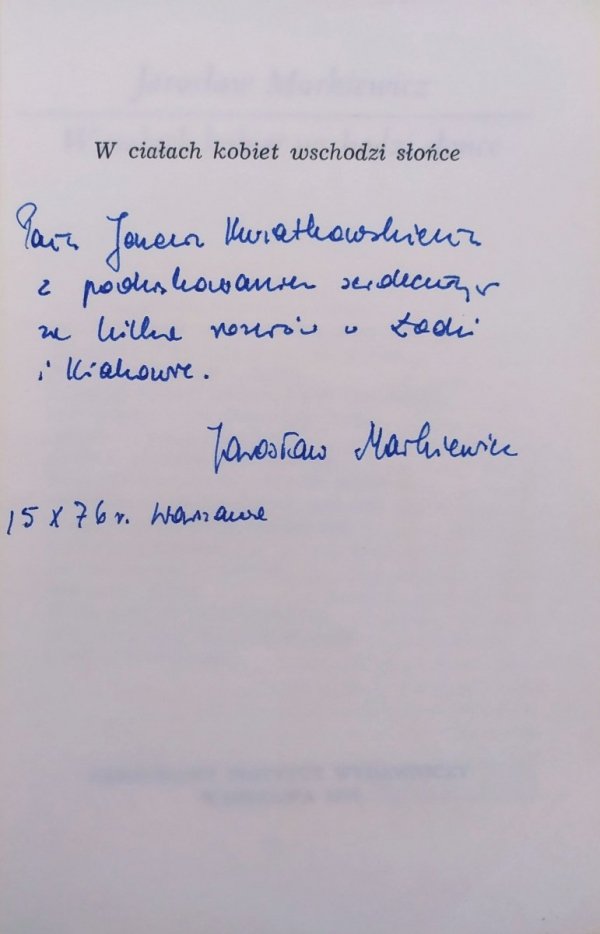 W ciałach kobiet wschodzi słońce
Panu Janowi Kwiatkowskiemu
z podziękowaniem serdecznym
za kilka rozmów w Łodzi
i Krakowie.
Jarosław Markiewicz
15 X 76 r. Warszawa